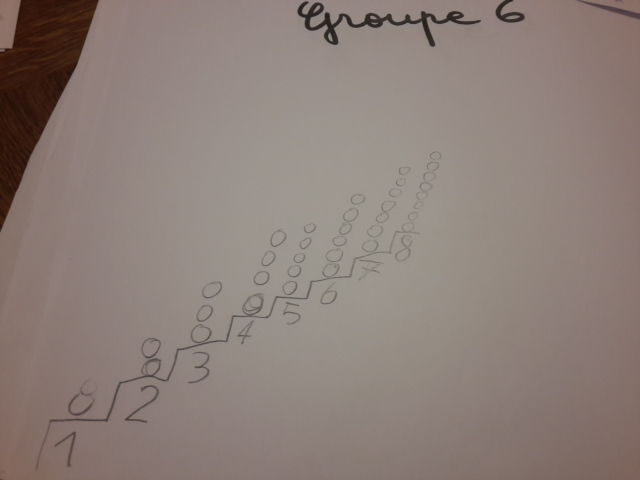 Groupe 6
1 2 3 4 5 6 7 8